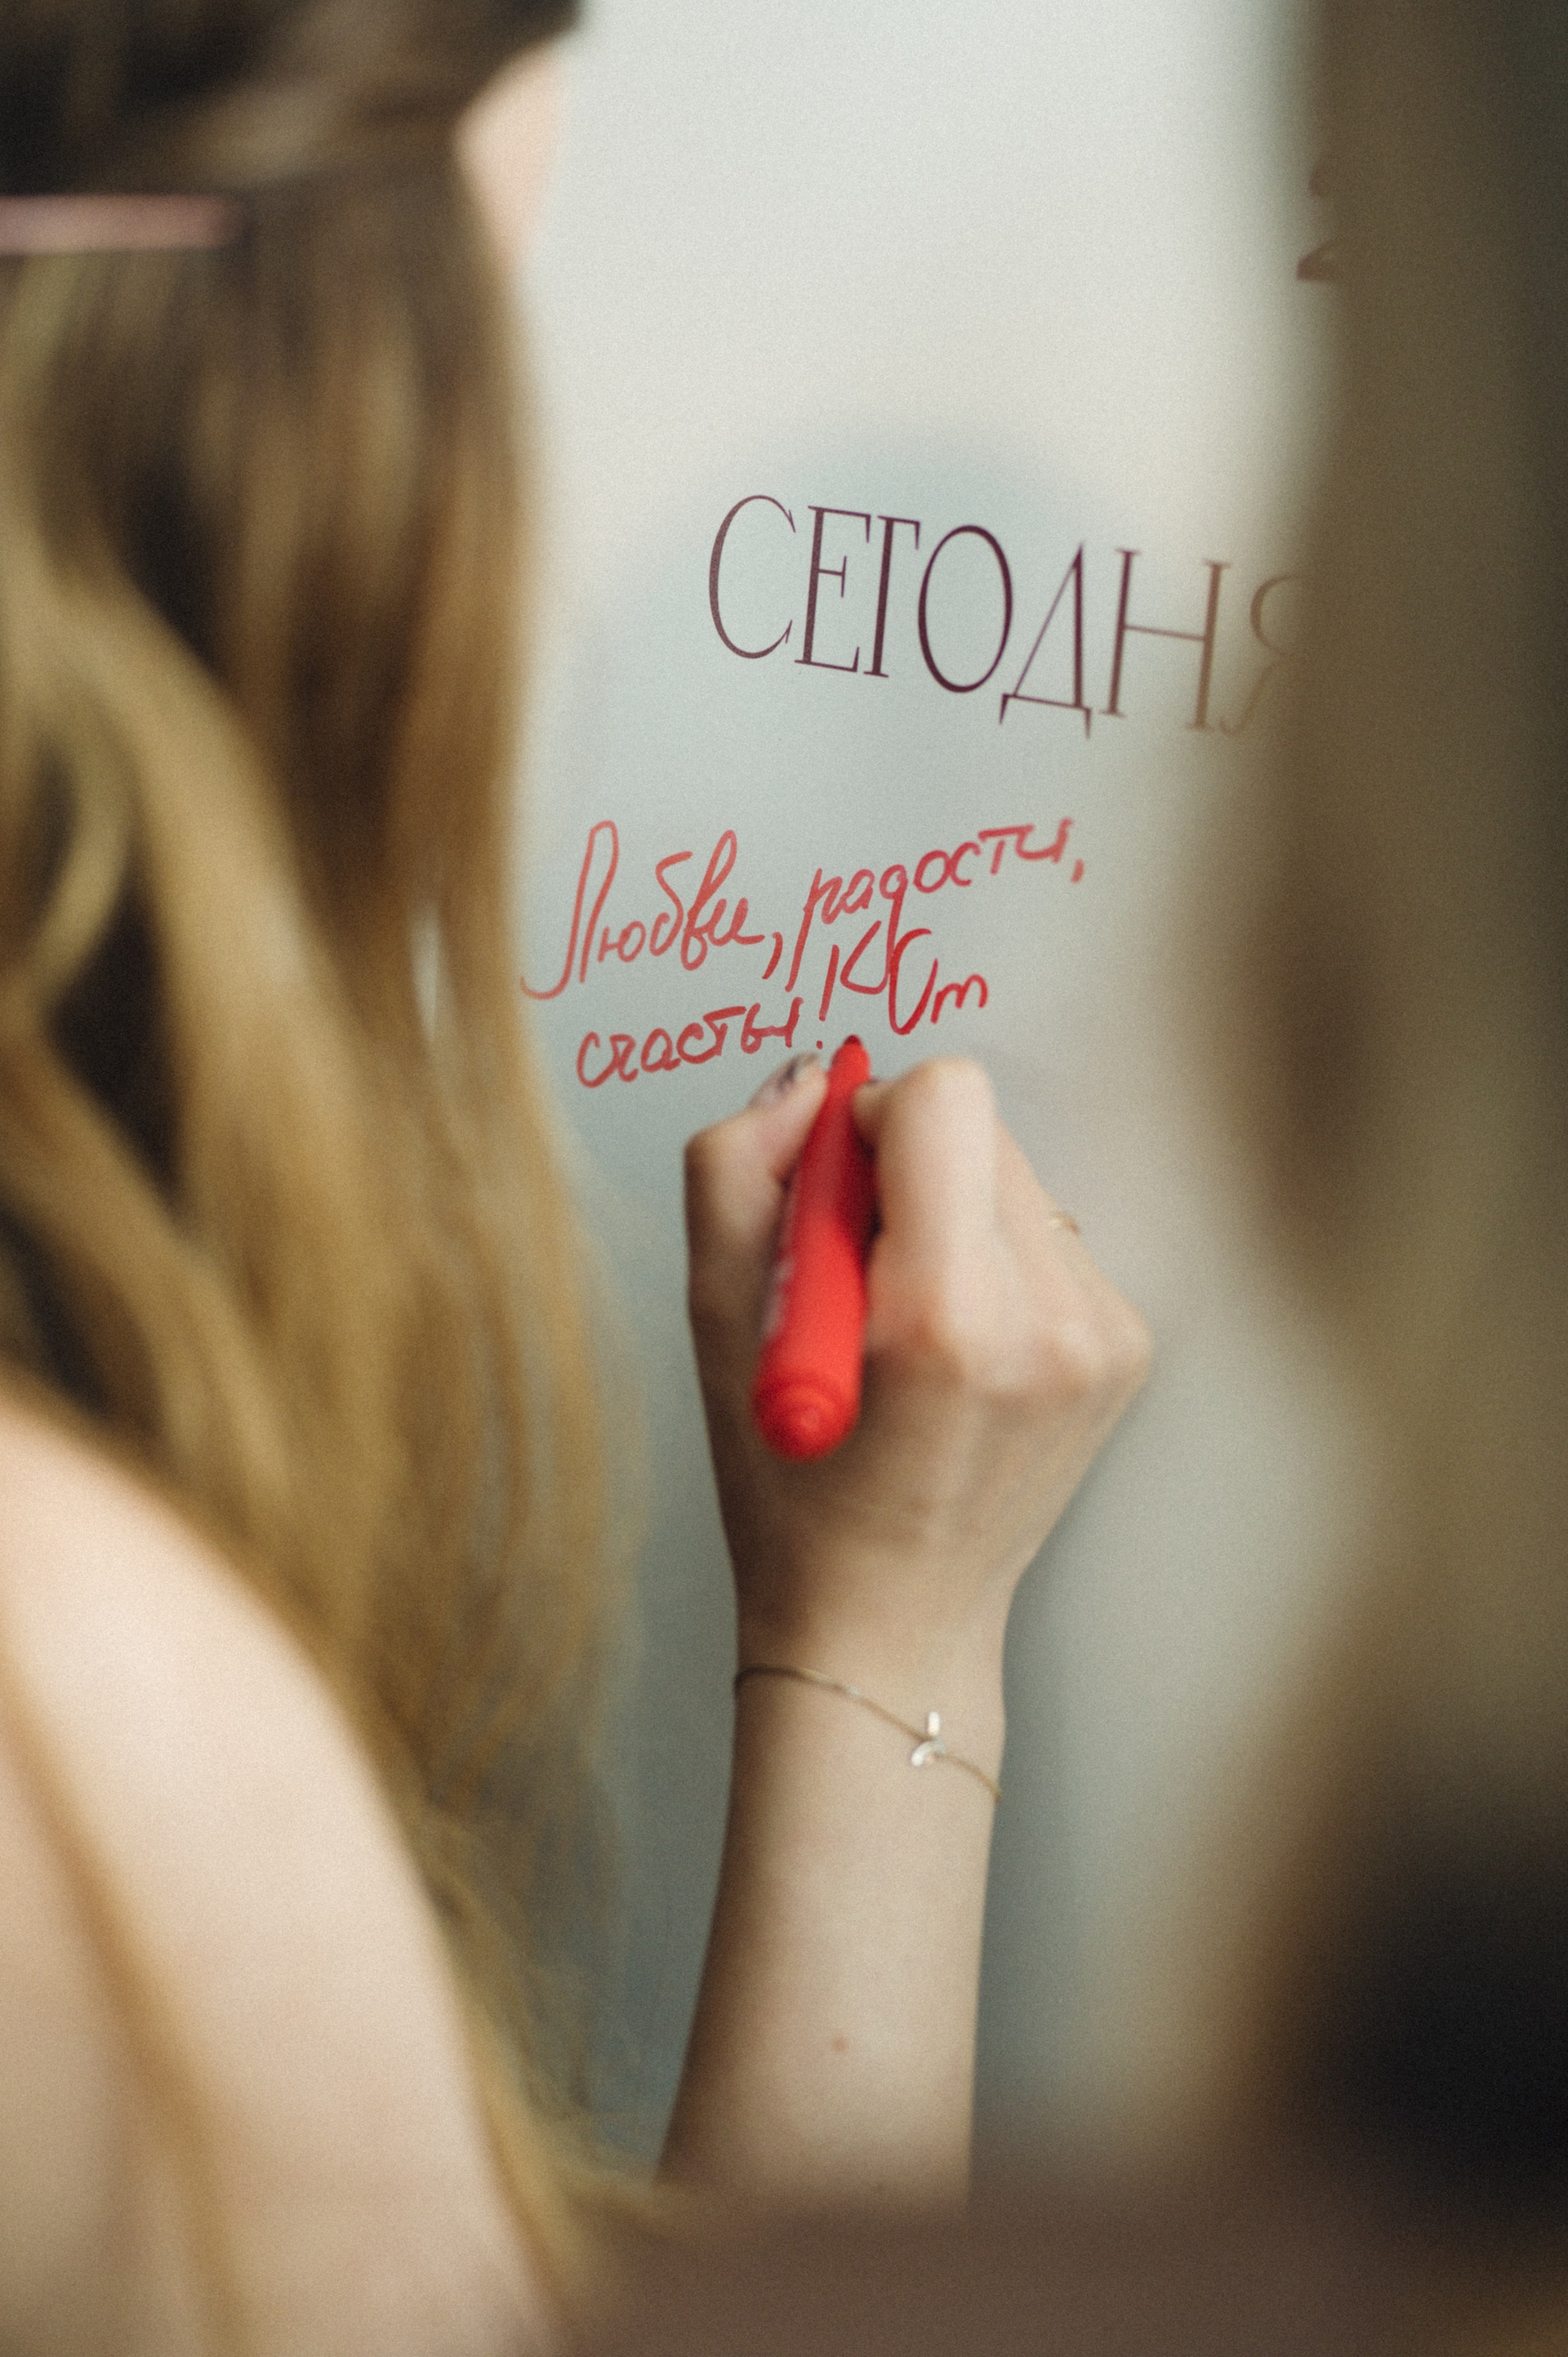 СЕГОДНЯ
Любви, радости,
счастья! От